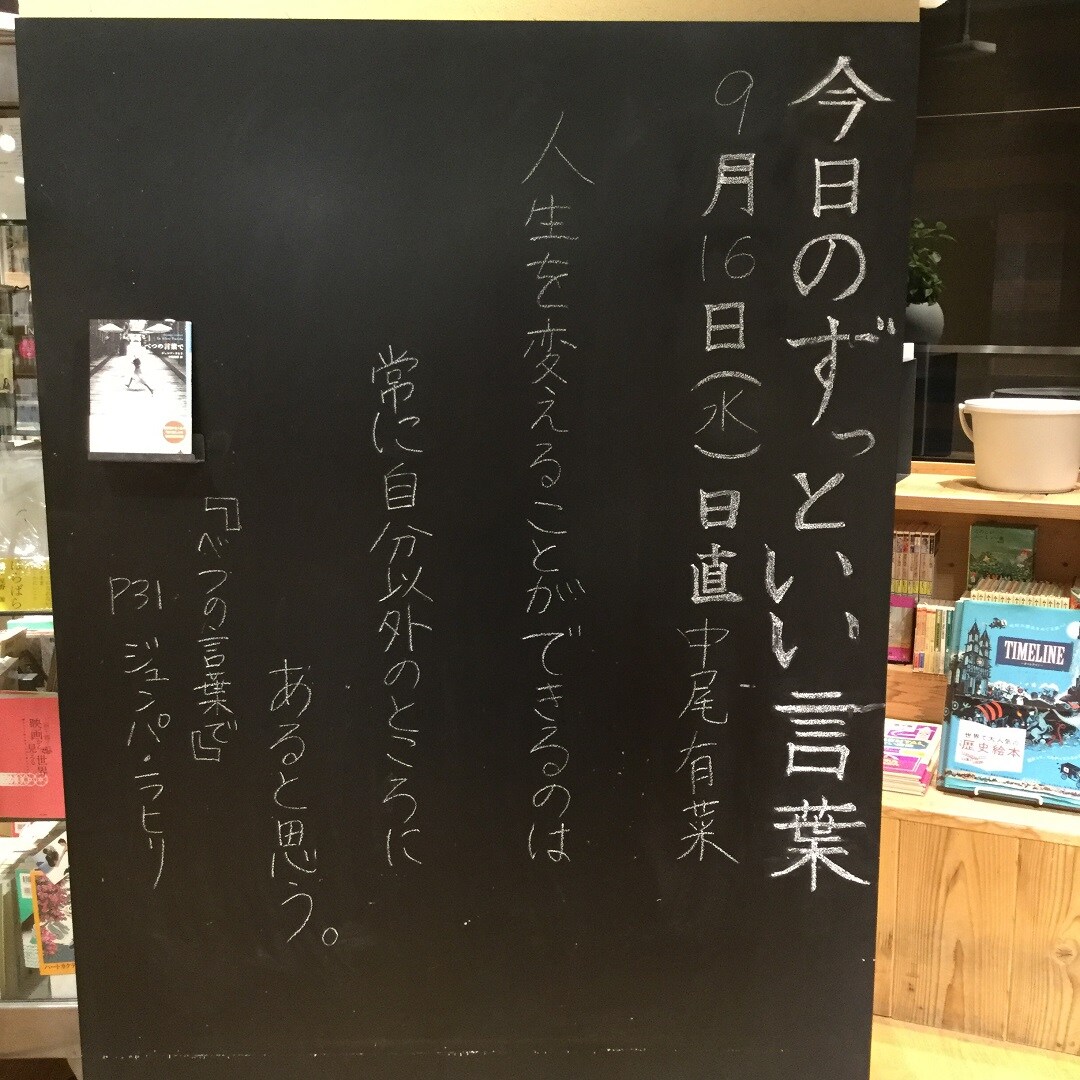 今日のずっといい言葉
9月16日(水)日直 中尾有菜
人生を変えることができるのは
常に自分以外のところに
あると思う。
『べつの言葉で』
P31 ジュンパ・ラヒリ
べつの言葉で
TIMELINE
世界で大人気の
歴史絵本